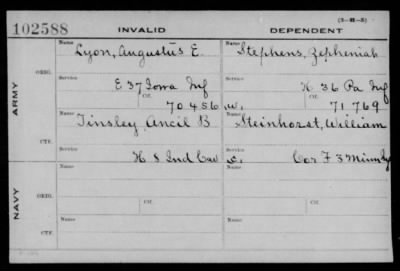 (3-81-5)
102588 INVALID DEPENDENT
ARMY
ORIG.
Name Lyon, Augustus E.
Name Stephens, Zepheniah
Service E 37 Iowa Inf
Service K 36 Pa Inf
Ctf. 70486 W.
Ctf. 71769
CTF.
Name Tinsley, Ancil B
Name Steinhorst, William
Service H 8 Ind Cav S.
Service Cor F 3 Minn
NAVY
ORIG.
Name
Name
Ctf.
Ctf.
CTF.
Name
Name